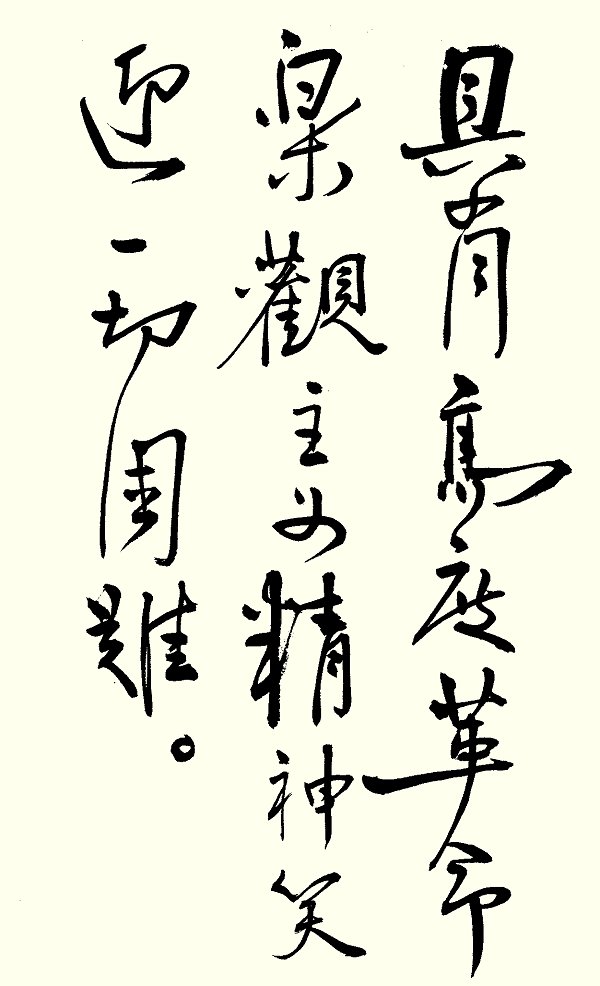 具有高度革命
樂觀主义精神笑
迎一切困難。